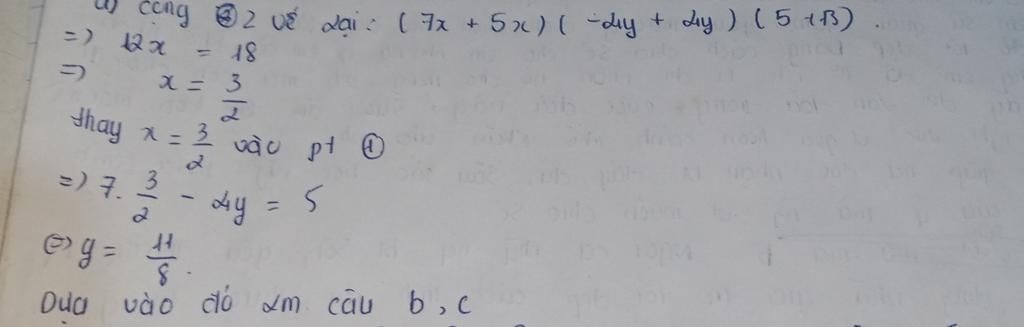 a) cộng 2 vế lại: (7x + 5x) (-4y + 4y) (5 + 13)
=> 12x = 18
=> x = 3/2
thay x = 3/2 vào pt ①
=> 7. 3/2 - 4y = 5
<=> y = 11/8.
Dựa vào đó làm câu b, c